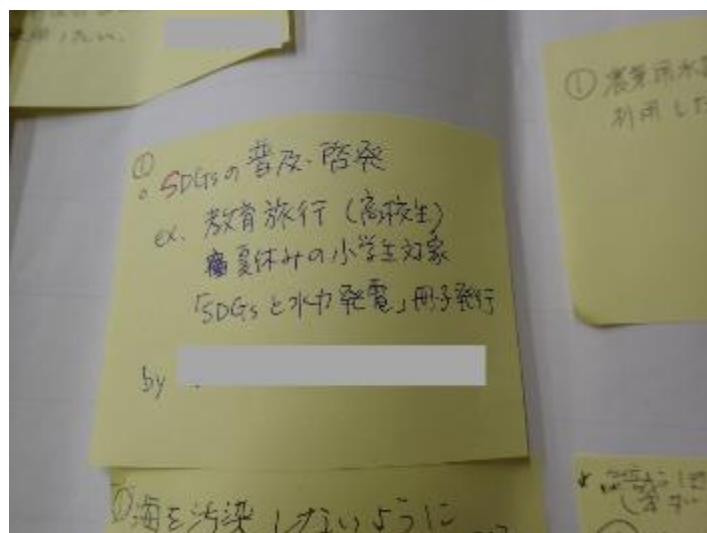 ①
。SDGsの普及・啓発
ex. 教育旅行（高校生）
夏休みの小学生対象
「SDGsと水力発電」冊子発行
by
① 農業用水
利用した
①海を汚染しないように